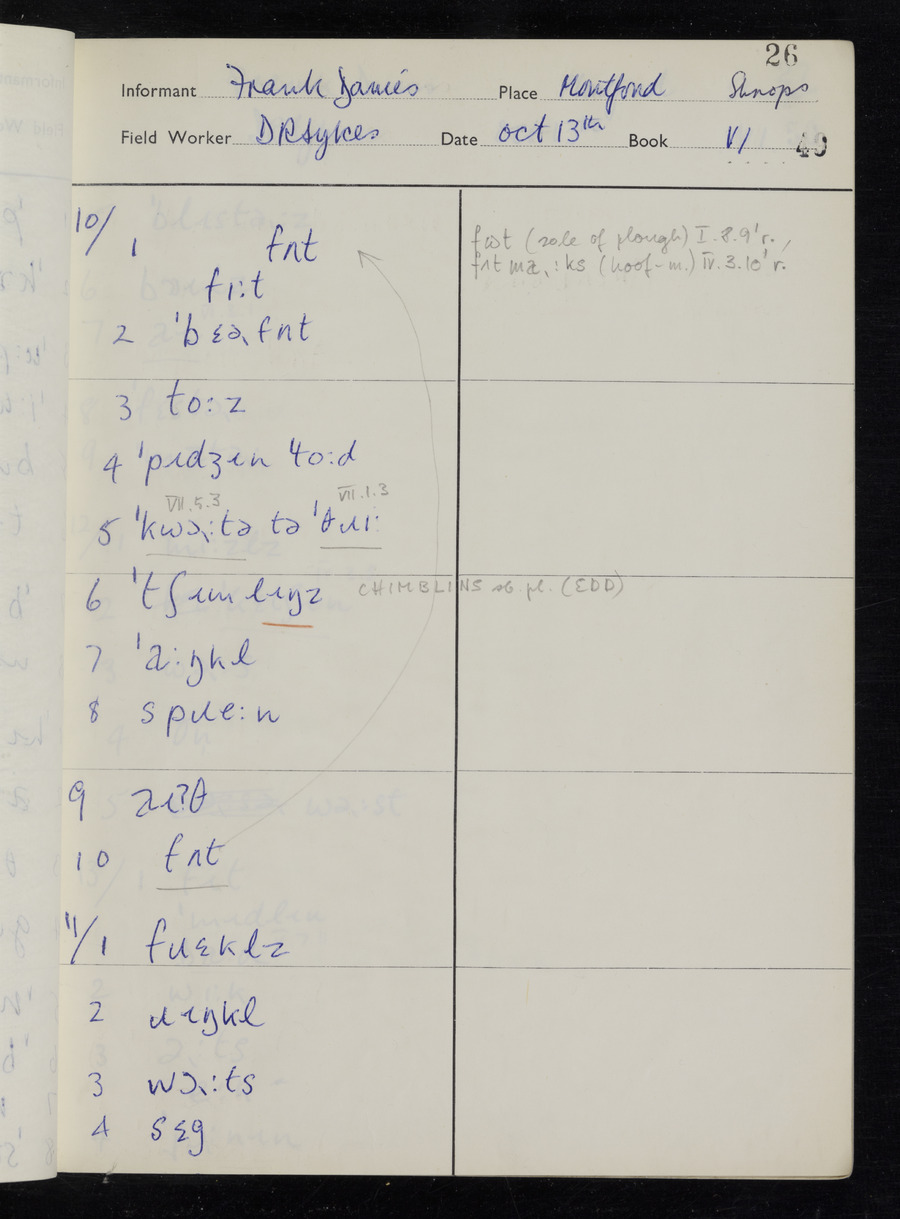 26
Informant Frank Davies Place Montford Shrops
Field Worker D R Sykes Date Oct 13th Book VI 49
10/1 fʌt
fɪ:t
2 ˈbɛəɹfʌt
3 to:z
4 ˈpɪdʒɪn ˈto:d
5 ˈkwəɹ:tə tə ˈθɹi:
VII.5.3 VII.1.3
6 ˈtʃɪmlɪŋz CHIMBLINS sb. pl. (EDD)
7 ˈa:ŋkl
8 spɹe:n
9 aɪʔθ
10 fʌt
11/1 fɹɛklz
2 ɹɪŋkl
3 wəɹ:ts
4 sɛg
fʊt (sole of plough) I.8.9'r.,
fʌt maɹ:ks (hoof-m.) IV.3.10'r.